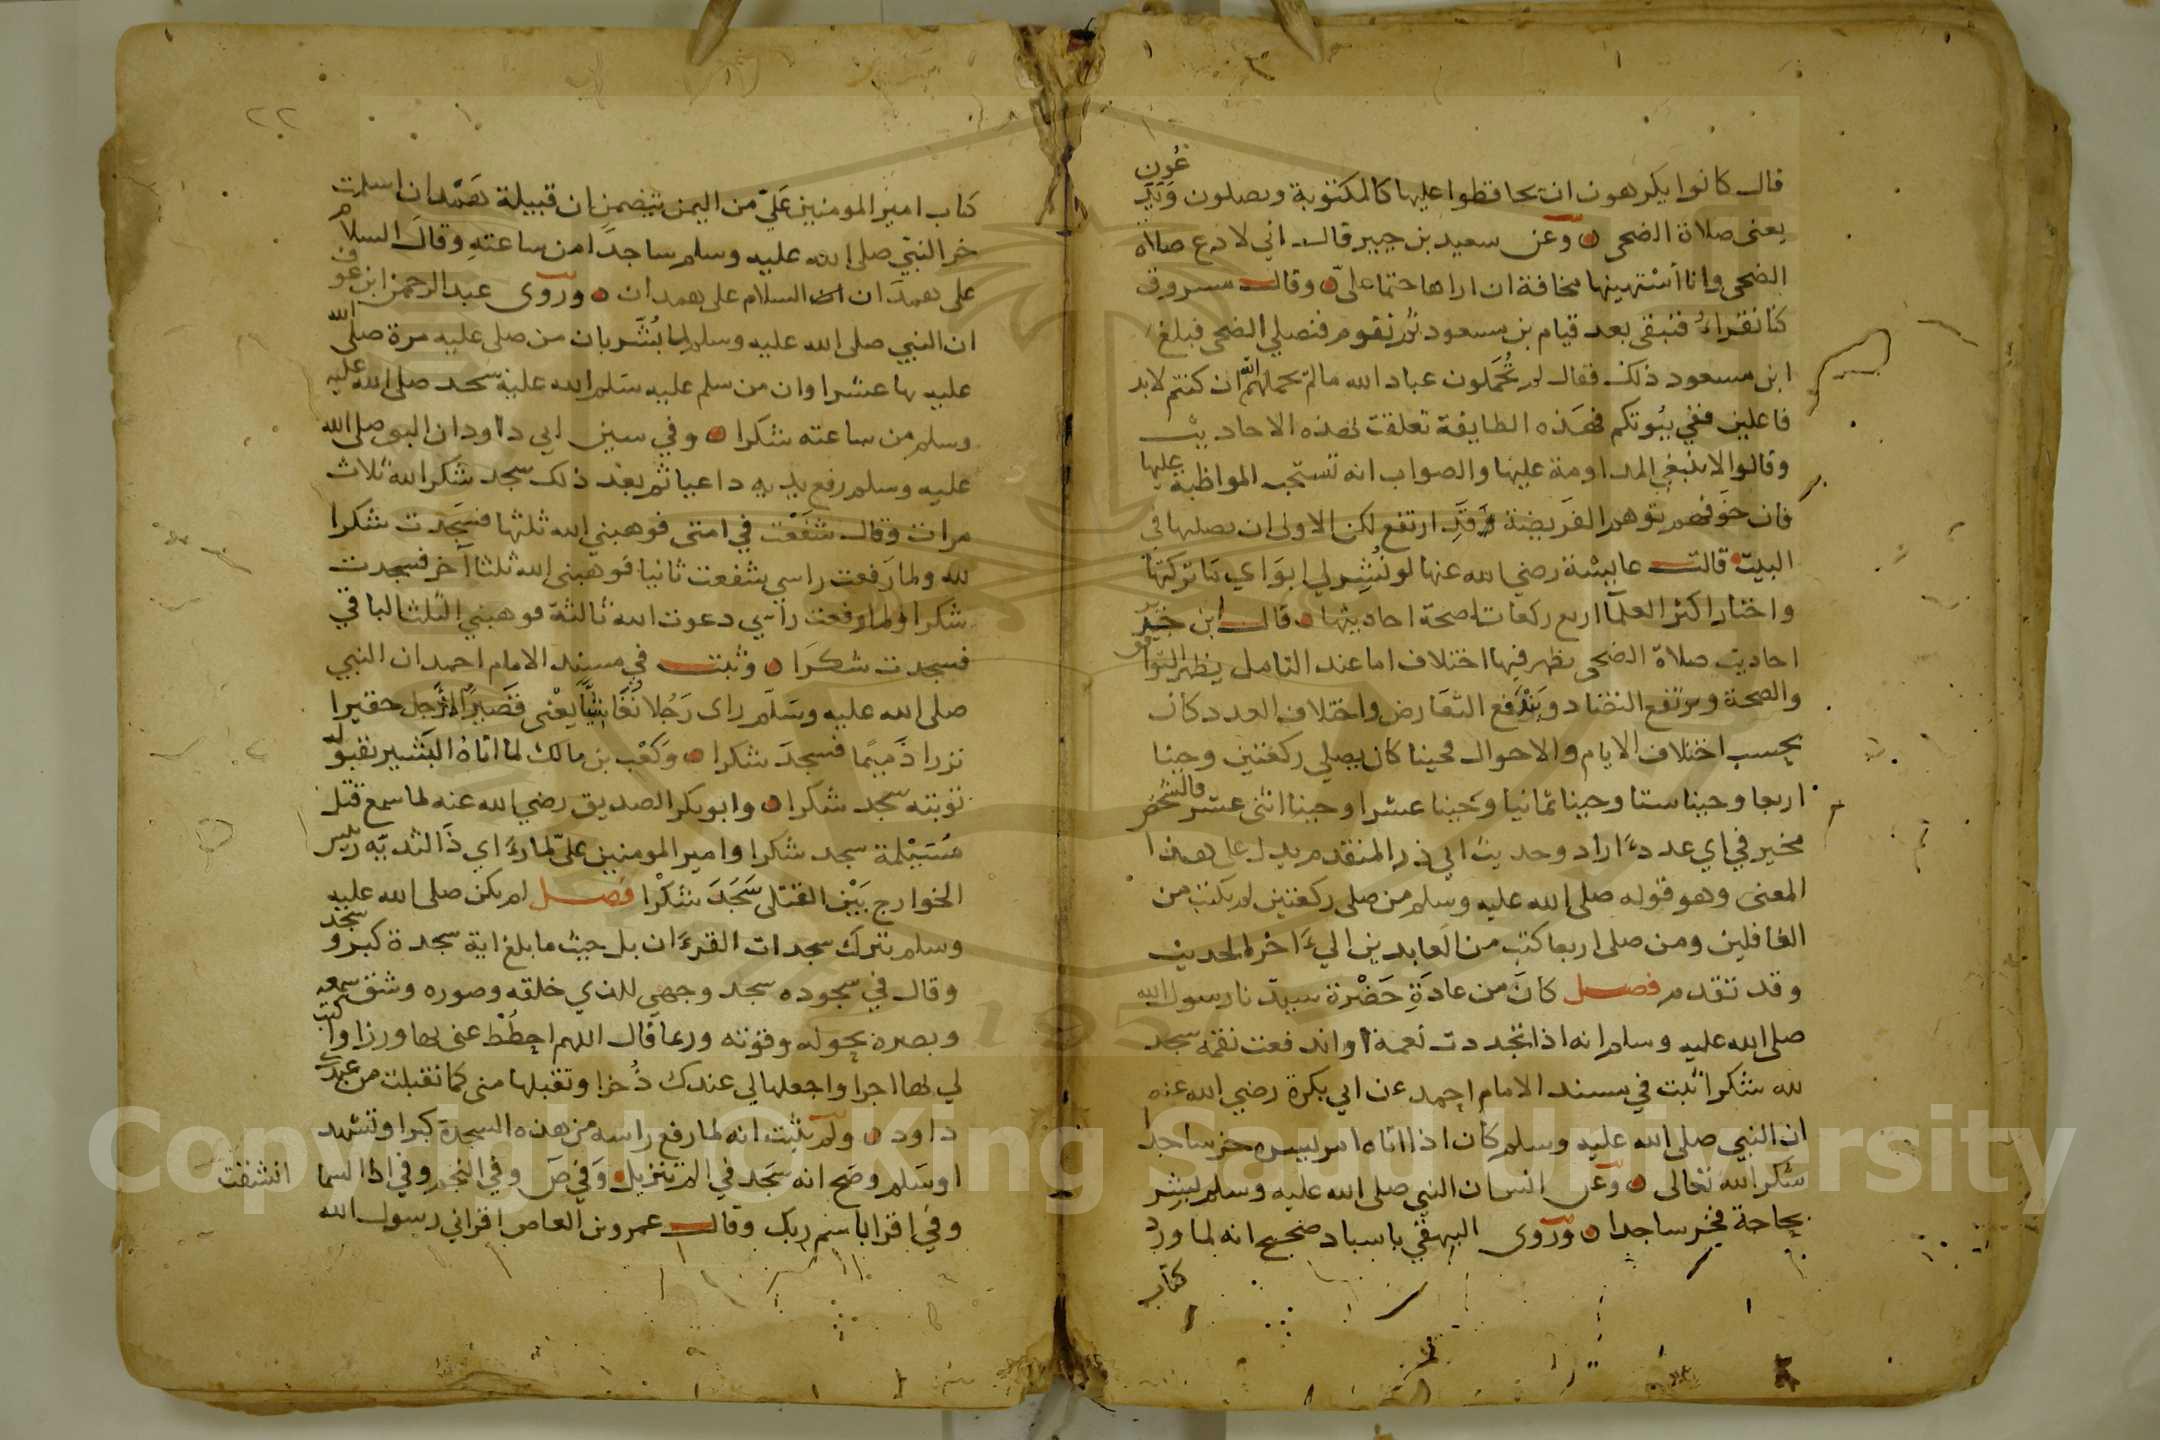 قال كانوا يكرهون ان يحافظوا عليها كالمكتوبة ويصلون ويَدَعُون
يعنى صلاة الضحى وعن سعيد بن جبير قال اني لادع صلاة
الضحى وانا أشتهيها مخافة ان اراها حتما علىّ وقال مسروق
كنا نقراء فنبقى بعد قيام بن مسعود ثم نقوم فنصلي الضحى فبلغ
ابن مسعود ذلك فقال لم تُحَمّلون عباد الله مالم يحملهم الله ان كنتم لابد
فاعلين ففي بيُوتكم فهَذه الطايفة تعلقت بهذه الاحاديث
وقالوا لا ينبغي المداومة عليها والصواب انه تستحب المواظبة عليها
فان خوفهم توهم الفريضة قد ارتفع لكن الاولى ان يصليها في
البيت قالت عايشة رضي الله عنها لو نُشِر لي ابوَاي ما تركتها
واختار اكثر العلما اربع ركعات لصحة احاديثها قال ابن
احاديث صلاة الضحى يظهر فيها اختلاف اما عند التامل يظهر التوافق
والصحة ويرتفع التضاد ويَندَفع التعَارض واختلاف العدد كان
بحسب اختلاف الايام والاحوال فحينا كان يصلي ركعتين وحينا
اربعا وحينا ستا وحينا ثمانيا وحَينا عشرا وحينا اثنى عشر فالشخص
مخير في اي عدد اراد وحديث ابي ذر المتقدم يدل على هذا
المعنى وهو قوله صلى الله عليه وسلم من صلى ركعتين لم يكتب من
الغافلين ومن صلى اربعا كتب من العابدين الي اخر الحديث
وقد تقدم فصل كانَ من عادَةِ حَضْرة سيدنا رسول الله
صلى الله عليه وسلم انه اذا تجددت نعمة او اندفعت نقمة سجد
لله شكرا ثبت في مسند الامام احمد عن ابي بكرة رضي الله عنه
ان النبي صلى الله عليه وسلم كان اذا اتاه امر يسره خر ساجدا
شكرا لله تعالى وعن انس ان النبي صلى الله عليه وسلم بُشر
بحاجة فخر ساجدا وروى البيهقي باسناد صحيح انه لما ورد
كتاب
٢٢
كتاب امير المومنين عَليّ من اليمن يتضمن ان قبيلة هَمْدان اسلمت
خر النبي صلى الله عليه وسلم ساجدا من ساعتهِ وقالَ السلام
على همدَان السلام على همدان وروى عبد الرحمن ابن عوف
ان النبي صلى الله عليه وسلم لما بُشّر بان من صلى عليه مرة صلى الله
عليه بها عشرا وان من سلم عليه سَلم الله عليه سجد صلى الله عليه
وسلم من ساعته شكرا وفي سنن ابي داود ان النبي صلى الله
عليه وسلم رفع يديه داعيا ثم بعد ذلك سجد شكرا لله ثلاث
مرات وقال شفَعْت في امتى فوهبني الله ثلثها فسَجدت شكرا
لله ولما رَفعت راسي شفعت ثانيا فوهبنى الله ثلثا آخر فسجدت
شكرا ولما رفعت راسي دعوت الله ثالثة فوهبني الثلث الباقي
فسجدت شكرَا وثبت في مسند الامام احمد ان النبي
صلى الله عليه وسَلّم راى رَجُلا نُغَاشِيًّا يعْنى قصَير الرَّجل حقيرا
نزرا ذَميمًا فسجدَ شكرا وكعْب بن مالك لما اتاهُ البَشير بقبول
توبته سجد شكرا وابوبكر الصديق رضي الله عنه لما سمع قتل
مُسَيْلمة سجد شكرا وامير المومنين علىّ لما رءَاي ذَا الثديّه رييس
الخوارج بَيْن القتلى سَجَدَ شكْرا فصل لم يكن صلى الله عليه
وسلم يترك سجدات القرءَان بل حيث ما بلغ اية سجدة كبر وسجد
وقال في سجوده سجد وجهي للذي خلقه وصوره وشق سمعه
وبصره بحوله وقوته وربما قال اللهم احطُطْ عنى بها وزرا واكتب
لي بها اجرا واجعلها لي عندك ذُخرا وتقبلها منى كما تقبلت من عبدك
داود ولم يثبت انه لما رفع راسه من هذه السجدة كبر او تشهد
او سَلم وصح انه سَجَد في الم تنزيل وَفي صَ وفي النجم وفي اذا السما انشقت
وفي اقرا باسم ربك وقال عمرو بن العاص اقراني رسول الله
Copyright © King Saud University
1957